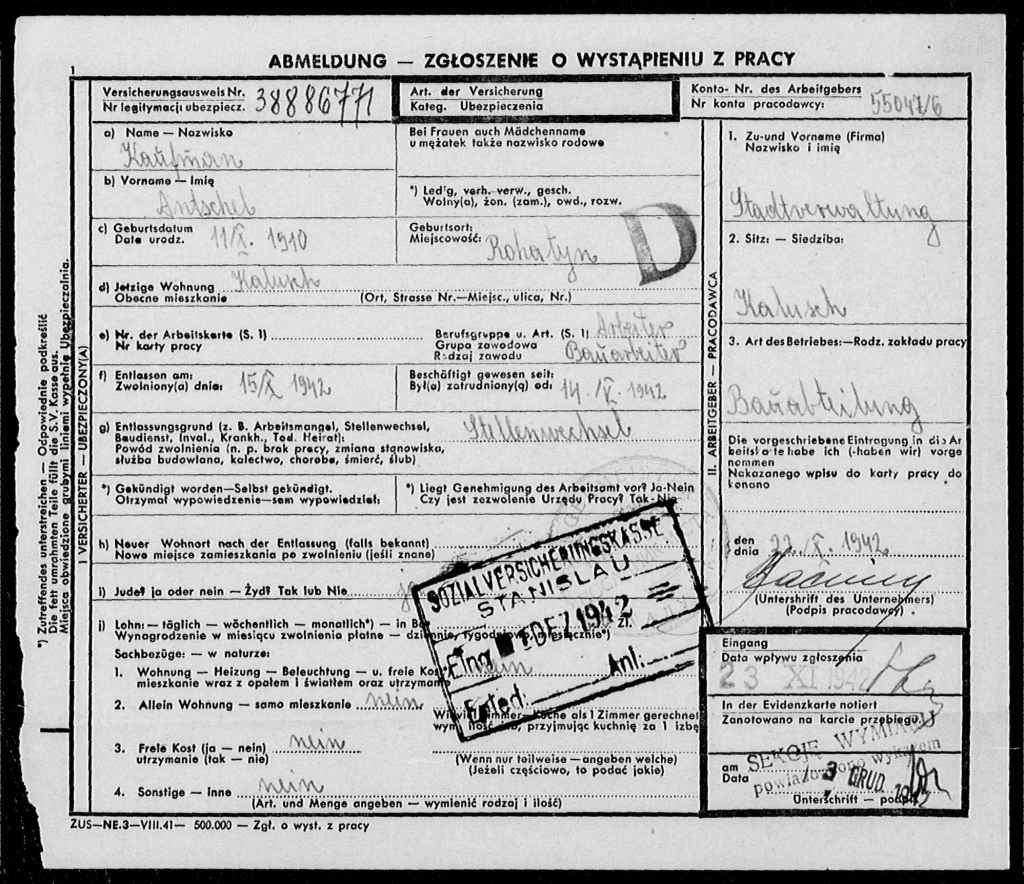 1
ABMELDUNG — ZGŁOSZENIE O WYSTĄPIENIU Z PRACY
Versicherungsausweis Nr.
Nr legitymacji ubezpiecz. 38886771
Art. der Versicherung
Kateg. Ubezpieczenia
Konto- Nr. des Arbeitgebers
Nr konta pracodawcy: 55047/6
*) Zutreffendes unterstreichen — Odpowiednie podkreślić
Die fett umrahmten Teile füllt die S.V. Kasse aus.
Miejsca obwiedzione grubymi liniami wypełnia Ubezpieczalnia.
I VERSICHERTER — UBEZPIECZONY(A)
a) Name — Nazwisko
Kaufman
Bei Frauen auch Mädchenname
u mężatek także nazwisko rodowe
b) Vorname — Imię
Antschel
*) Led'g, verh. verw., gesch.
Wolny(a), żon. (zam.), owd., rozw.
c) Geburtsdatum
Data urodz. 11/X. 1910
Geburtsort:
Miejscowość: Rohatyn
D
d) Jetzige Wohnung Kalusch
Obecne mieszkanie (Ort, Strasse Nr.—Miejsc., ulica, Nr.)
e) Nr. der Arbeitskarte (S. 1)
Nr karty pracy
Berufsgruppe u. Art. (S. 1) Arbeiter
Grupa zawodowa
Rodzaj zawodu Bauarbeiter
f) Entlassen am:
Zwolniony(a) dnia: 15/X 1942
Beschäftigt gewesen seit:
Był(a) zatrudniony(a) od: 14. 1942
g) Entlassungsgrund (z. B. Arbeitsmangel, Stellenwechsel, Stellenwechsel
Baudienst, Inval., Krankh., Tod. Heirat):
Powód zwolnienia (n. p. brak pracy, zmiana stanowiska,
służba budowlana, kalectwo, choroba, śmierć, ślub)
*) Gekündigt worden—Selbst gekündigt.
Otrzymał wypowiedzenie—sam wypowiedział:
*) Liegt Genehmigung des Arbeitsamt vor? Ja-Nein
Czy jest zezwolenie Urzędu Pracy? Tak-Nie
h) Neuer Wohnort nach der Entlassung (falls bekannt)
Nowe miejsce zamieszkania po zwolnieniu (jeśli znane)
i) Jude? ja oder nein — Żyd? Tak lub Nie
j) Lohn: — täglich — wöchentlich — monatlich*) — in
Wynagrodzenie w miesiącu zwolnienia płatne — dziennie, tygodniowo, miesięcznie*)
zł.
Sachbezüge: — w naturze:
1. Wohnung — Heizung — Beleuchtung — u. freie Kost
mieszkanie wraz z opałem i światłem oraz utrzymam
2. Allein Wohnung — samo mieszkanie nein
Wieviel Zimmer—Küche als 1 Zimmer gerechnet
wym. przyjmując kuchnię za 1 izbę
3. Freie Kost (ja — nein) nein
utrzymanie (tak — nie)
(Wenn nur teilweise — angeben welche)
(Jeżeli częściowo, to podać jakie)
4. Sonstige — inne nein
(Art. und Menge angeben — wymienić rodzaj i ilość)
SOZIALVERSICHERUNGSKASSE
STANISLAU
Eing 1 DEZ 1942
Anl:
Erled:
II. ARBEITGEBER — PRACODAWCA
1. Zu-und Vorname (Firma)
Nazwisko i imię
Stadtverwaltung
2. Sitz: — Siedziba:
Kalusch
3. Art des Betriebes:—Rodz. zakładu pracy
Bauabteilung
Die vorgeschriebene Eintragung in die Ar
beitskarte habe ich (-haben wir) vorge
nommen
Nakazanego wpisu do karty pracy do
konano
den
dnia 22. X. 1942
(Unterschrift des Unternehmers)
(Podpis pracodawcy)
Eingang
Data wpływu zgłoszenia
23 XI 1942
In der Evidenzkarte notiert
Zanotowano na karcie przebiegu.
SEKCJĘ WYMIARU
am
Data 3 GRUD.
Unterschrift — podpis
ZUS—NE.3—VIII.41— 500.000 — Zgł. o wyst. z pracy